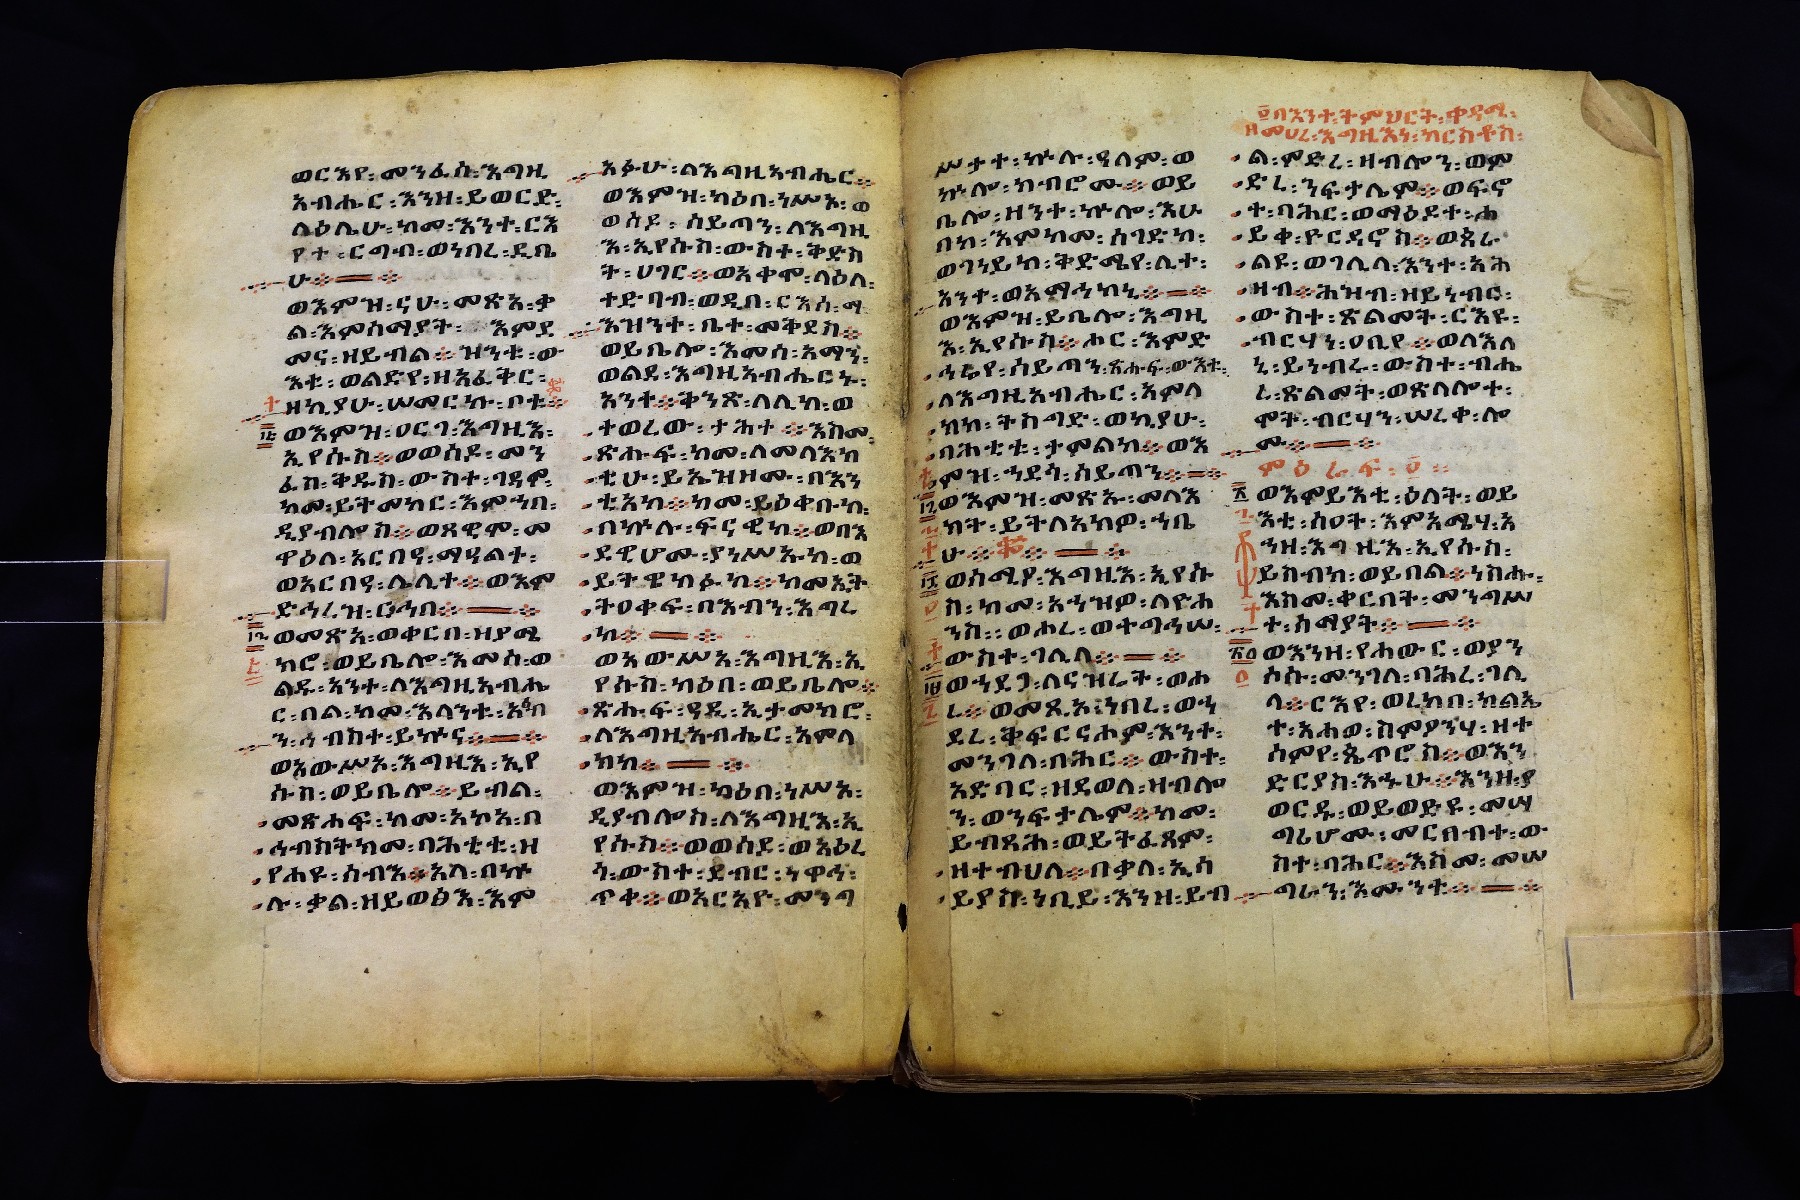 ወርእየ፡መንፈሰ፡እግዚ
አብሔር፡እንዘ፡ይወርድ፡
ላዕሌሁ፡ከመ፡እንተ፡ርእ
የተ፡ርግብ፡ወነበረ፡ዲቤ
ሁ፨
ወእምዝ፡ናሁ፡መጽአ፡ቃ
ል፡እምሰማያት፡እምደ
መና፡ዘይብል፨ዝንቱ፡ው
እቱ፡ወልድየ፡ዘአፈቅር፡
ዘኪያሁ፡ሠመርኩ፡ቦቱ፨
ወእምዝ፡ዐርገ፡እግዚእ፡
ኢየሱስ፨ወወሰዶ፡መን
ፈስ፡ቅዱስ፡ውስተ፡ገዳም፡
ከመ፡ይትመከር፡እምኀበ፡
ዲያብሎስ፨ወጾመ፡መ
ዋዕለ፡አርበዓ፡ማዓልተ፡
ወአርበዓ፡ሌሊተ፨ወእም
ድኅረዝ፡ርኅበ፨
ወመጽአ፡ወቀርበ፡ዘያሜ
ክሮ፡ወይቤሎ፡እመሰ፡ወ
ልዱ፡አንተ፡ለእግዚአብሔ
ር፡በል፡ከመ፡እላንቱ፡እብ
ን፡ኅብስተ፡ይኩና፨
ወአውሥአ፡እግዚእ፡ኢየ
ሱስ፡ወይቤሎ፨ይብል፡
መጽሐፍ፡ከመ፡አኮ፡በ
ኅብስት፡ከመ፡ባሕቲቱ፡ዘ
የሐዩ፡ሰብእ፨አላ፡በኵ
ሉ፡ቃል፡ዘይወፅእ፡እም
አፉሁ፡ለእግዚአብሔር፨
ወእምዝ፡ካዕበ፡ነሥኦ፡ወ
ወሰዶ፡ሰይጣን፡ለእግዚ
እ፡ኢየሱስ፡ውስተ፡ቅድስ
ት፡ሀገር፨ወአቀሞ፡ላዕለ፡
ተድባብ፡ወዲበ፡ርእሰ፡ማ
እዝንተ፡ቤተ፡መቅደስ፨
ወይቤሎ፡እመሰ፡አማን፡
ወልደ፡እግዚአብሔር፡ኑ፡
አንተ፨ቅንጽ፡ለሊከ፡ወ
ተወረው፡ታሕተ፨እስመ፡
ጽሑፍ፡ከመ፡ለመላእክ
ቲሁ፡ይኤዝዞሙ፡በእን
ቲአከ፨ከመ፡ይዕቀቡከ፡
በኵሉ፡ፍናዊከ፨ወበእ
ደዊሆሙ፡ያነሥኡከ፡ወ
ይትዌከፉከ፨ከመ፡ኢት
ትዐቀፍ፡በእብን፡እግረ
ከ፨
ወአውሥአ፡እግዚእ፡ኢ
የሱስ፡ካዕበ፡ወይቤሎ፨
ጽሑፍ፡ዓዲ፡ኢታመክሮ፡
ለእግዚአብሔር፡አምላ
ክከ፨
ወእምዝ፡ካዕበ፡ነሥአ፡
ዲያብሎስ፡ለእግዚእ፡ኢ
የሱስ፨ወወሰደ፡ወአዕረ
ጎ፡ውስተ፡ደብር፡ነዋኅ፡
ጥቀ፨ወአርአዮ፡መንግ
ሥታተ፡ኵሉ፡ዓለም፡ወ
ኵሎ፡ክብሮሙ፨ወይ
ቤሎ፡ዘንተ፡ኵሎ፡እሁ
በከ፡እምከመ፡ሰገድከ፡
ወገነይከ፡ቅድሜየ፡ሊተ፡
አንተ፡ወአማኅከኒ፨
ወእምዝ፡ይቤሎ፡እግዚ
እ፡ኢየሱስ፨ሖር፡እምድ
ኅሬየ፡ሰይጣን፡ጽሑፍ፡ውእቱ፡
ለእግዚአብሔር፡አምላ
ክከ፡ትስግድ፡ወኪያሁ፡
ባሕቲቱ፡ታምልክ፨ወእ
ምዝ፡ኀደጎ፡ሰይጣን፨
ወእምዝ፡መጽኡ፡መላእ
ክት፡ይትለአክዎ፡ኀቤ
ሁ፨
ወሰሚዖ፡እግዚእ፡ኢየሱ
ስ፡ከመ፡አኀዝዎ፡ለዮሐ
ንስ፡ወሖረ፡ወተግኅሠ፡
ውስተ፡ገሊላ፨
ወኀደጋ፡ለናዝሬት፡ወሖ
ረ፨ወመጺኦ፡ነበረ፡ወኀ
ደረ፡ቅፍርናሖም፡እንተ፡
መንገለ፡ባሕር፨ውስተ፡
አድባር፡ዘደወለ፡ዘብሎ
ን፡ወንፍታሌም፨ከመ፡
ይብጻሕ፡ወይትፈጸም፡
ዘተብህለ፨በቃለ፡ኢሳ
ይያስ፡ነቢይ፡እንዘ፡ይብ
፬በእንተ፡ትምህርት፡ቀዳሚ፡
ዘመሀረ፡እግዚእነ፡ክርስቶስ፡
ል፡ምድረ፡ዘብሎን፡ወም
ድረ፡ንፍታሌም፨ወፍኖ
ተ፡ባሕር፡ወማዕዶተ፡ሐ
ይቀ፡ዮርዳኖስ፨ወጶራ
ልዩ፡ወገሊላ፡እንተ፡አሕ
ዛብ፨ሕዝብ፡ዘይነብር፡
ውስተ፡ጽልመት፡ርእዩ፡
ብርሃነ፡ዐቢየ፨ወለእለ
ኒ፡ይነብሩ፡ውስተ፡ብሔ
ረ፡ጽልመት፡ወጽላሎተ፡
ሞት፡ብርሃን፡ሠረቀ፡ሎ
ሙ፨
ምዕራፍ፡፬፡፡
ወእምይእቲ፡ዕለት፡ወይ
እቲ፡ሰዐት፡እምአሜሃ፡አ
ኀዘ፡እግዚእ፡ኢየሱስ፡
ይስብክ፡ወይበል፨ነስሑ፡
እስመ፡ቀርበት፡መንግሥ
ተ፡ሰማያት፨
ወእንዘ፡የሐውር፡ወያን
ሶሱ፡መንገለ፡ባሕረ፡ገሊ
ላ፨ርእየ፡ወረከበ፡ክልኤ
ተ፡አሐወ፡ስምዖንሃ፡ዘተ
ሰምየ፡ጴጥሮስ፨ወእን
ድርያስ፡እኁሁ፨እንዘ፡ያ
ወርዱ፡ወይወድዩ፡መሣ
ግሪሆሙ፡መርበብተ፡ው
ስተ፡ባሕር፨እስመ፡መሠ
ግራን፡እሙንቱ፨